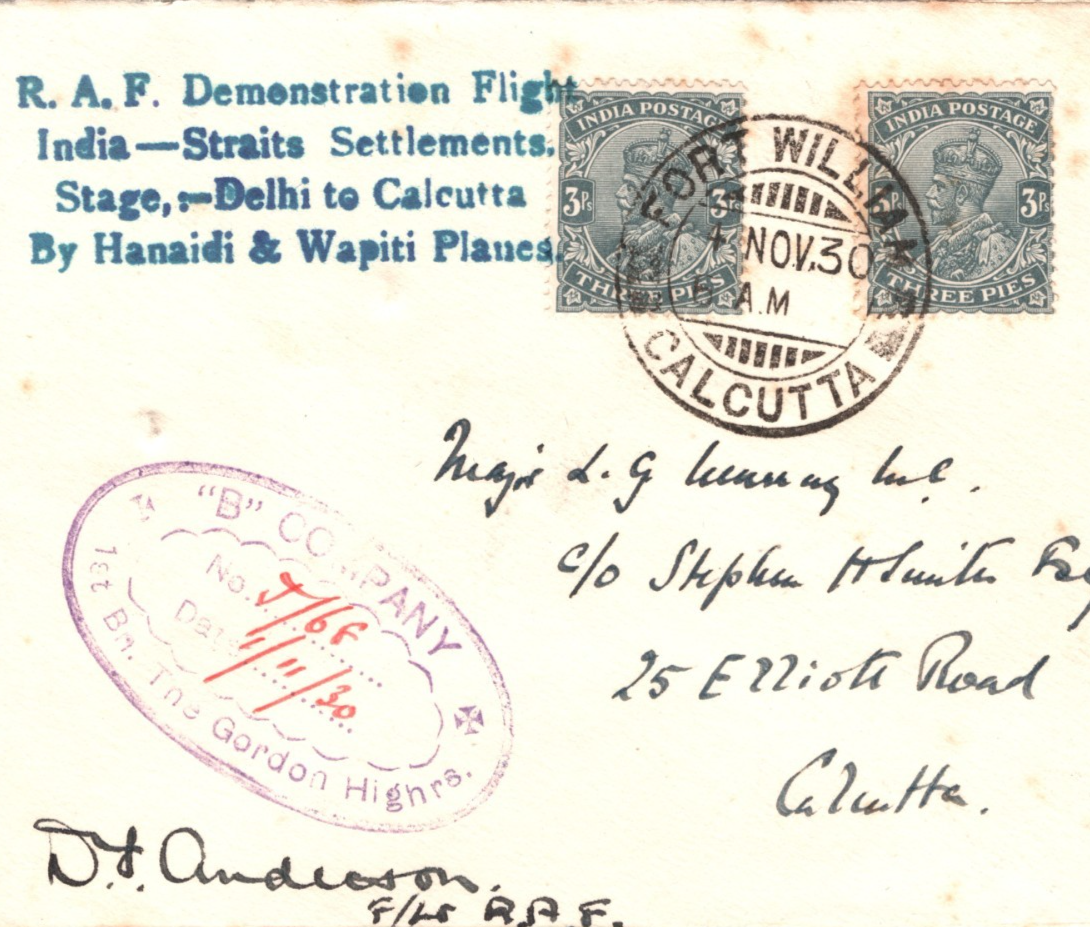 R. A. F. Demonstration Flight
India—Straits Settlements.
Stage,:—Delhi to Calcutta
By Hanaidi & Wapiti Planes.
INDIA POSTAGE
3Ps 3Ps
THREE PIES
INDIA POSTAGE
3Ps 3Ps
THREE PIES
FORT WILLIAM
4 NOV.30
6 A.M
CALCUTTA
Major L. G. Murray M.C.
c/o Stephen H Smith Esq
25 Elliott Road
Calcutta.
"B" COMPANY
No. J/68
Date 1/11/30
1st Bn. The Gordon Highrs.
Anderson.
F/Lt R.A.F.